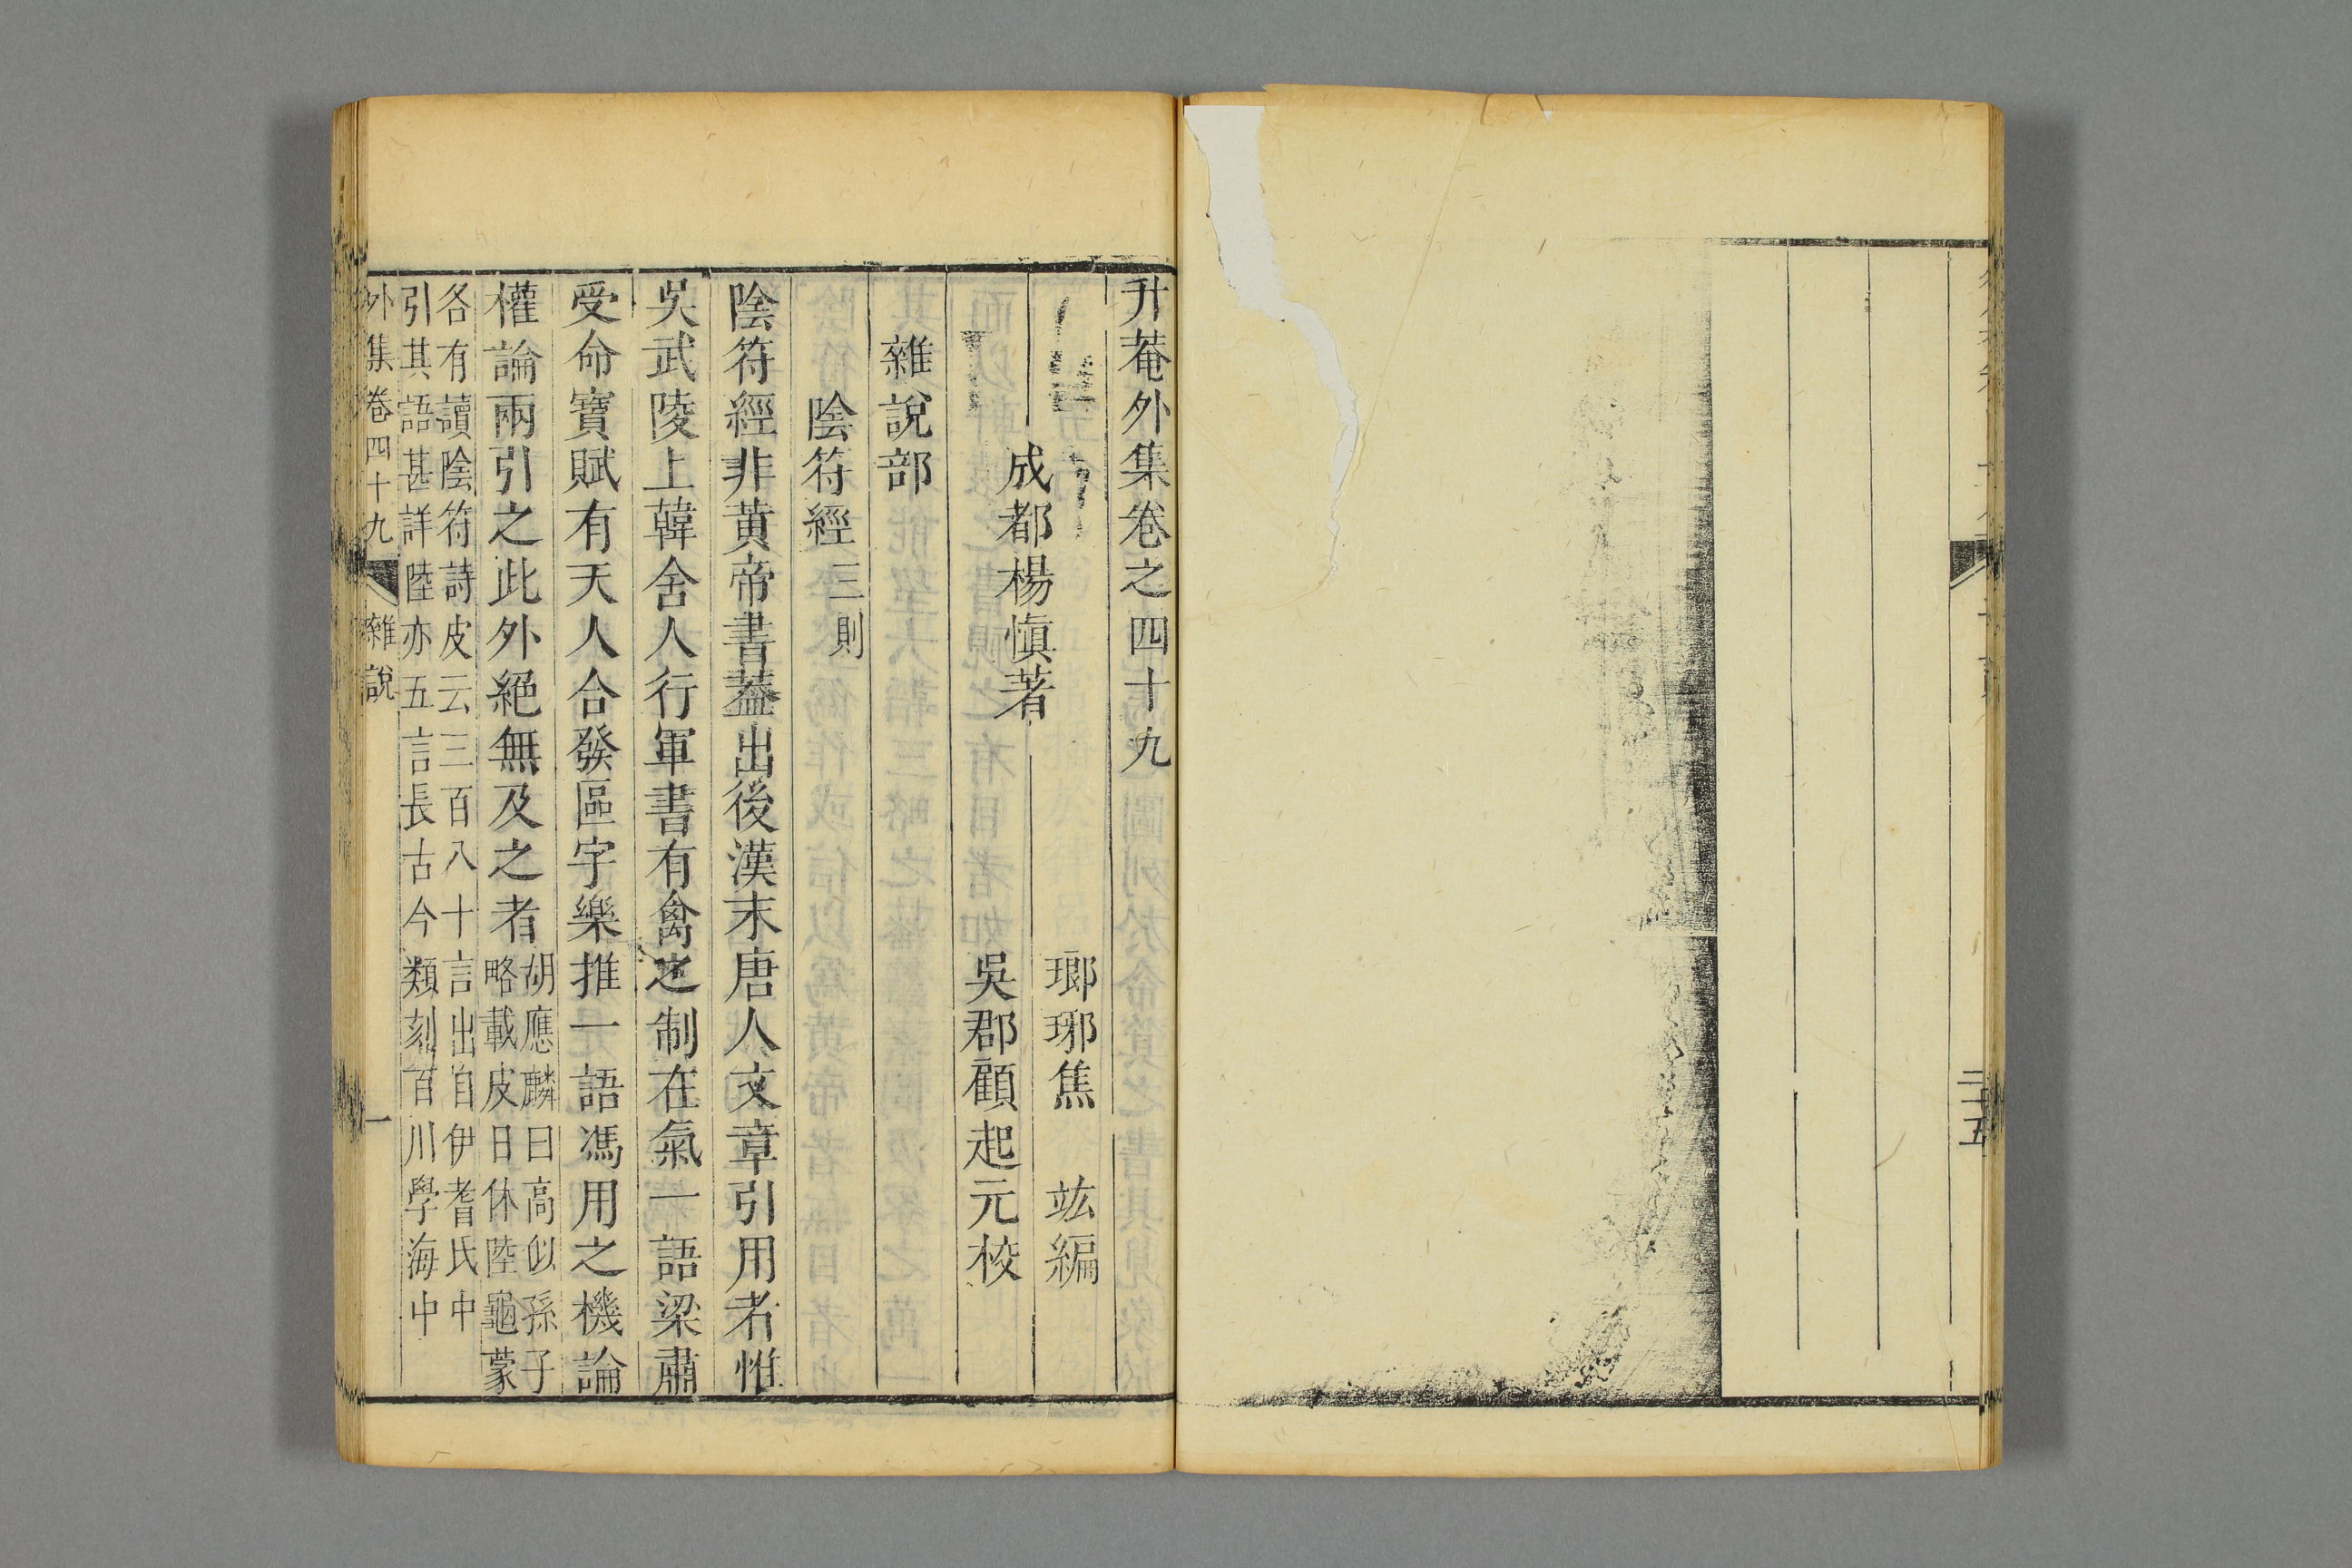 二十五
升菴外集卷之四十九
瑯琊焦　竑編
成都楊慎著
吳郡顧起元校
雜說部
陰符經三則
陰符經非黄帝書葢出後漢末唐人文章引用者惟
吳武陵上韓舍人行軍書有禽之制在氣一語梁肅
受命寶賦有天人合發區宇樂推一語馮用之機論
權論兩引之此外絕無及之者
胡應麟曰高似孫子
略載皮日休陸龜蒙
各有讀陰符詩皮云三百八十言出自伊耆氏中
引其語甚詳陸亦五言長古今類刻百川學海中
外集卷四十九　雜說　一